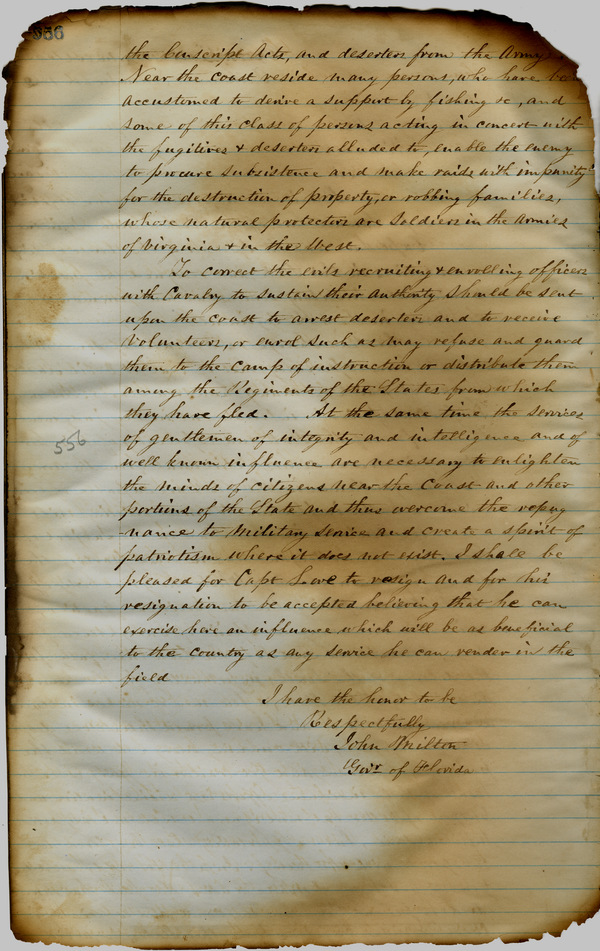 556
the Conscript Acts, and deserters from the Army
Near the coast reside many persons, who have be
accustomed to derive a support by fishing &c, and
some of this class of persons acting in concert with
the fugitives & deserters alluded to, enable the enemy
to procure subsistence and make raids with impunity
for the destruction of property, or robbing families,
whose natural protectors are Soldiers in the Armies
of Virginia & in the West.
To correct the evils recruiting & enrolling officers
with Cavalry to sustain their authority should be sent
upon the coast to arrest deserters and to receive
Volunteers, or enrol such as may refuse and guard
them to the camp of instruction or distribute them
among the Regiments of the States from which
they have fled. At the same time the services
of gentlemen of integrity and intelligence and of
well known influence are necessary to enlighten
556
the minds of citizens near the Coast and other
portions of the State and thus overcome the repug
nance to Military service and create a spirit of
patriotism where it does not exist. I shall be
pleased for Capt Love to resign and for his
resignation to be accepted believing that he can
exercise here an influence which will be as beneficial
to the country as any service he can render in the
field
I have the honor to be
Respectfully
John Milton
Govr of Florida